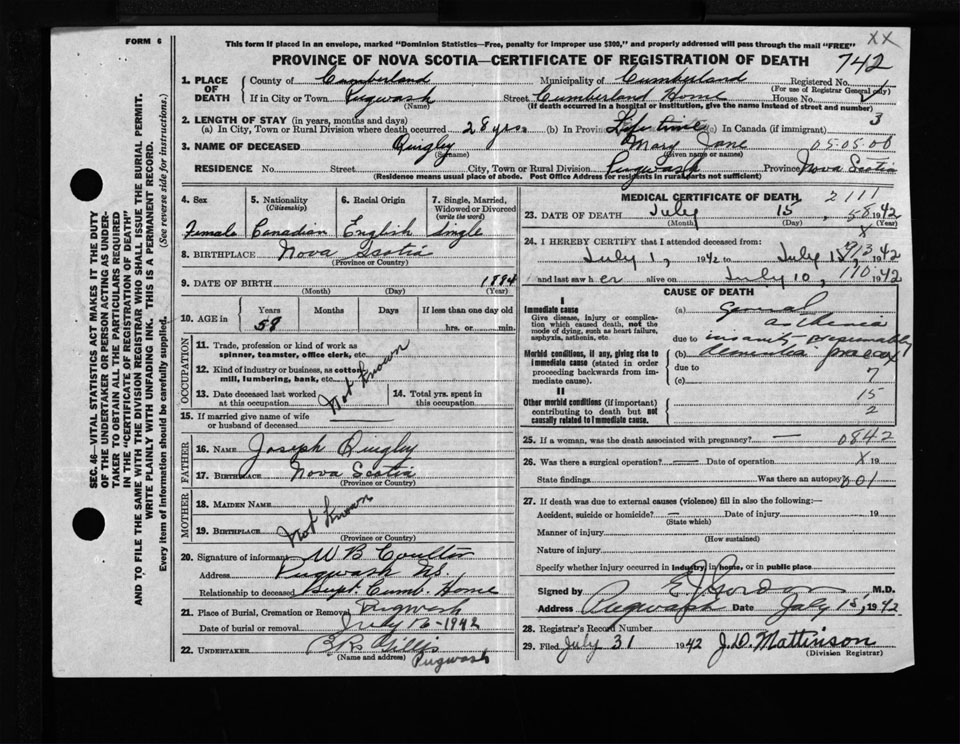 FORM 6
This form if placed in an envelope, marked "Dominion Statistics—Free, penalty for improper use $300," and properly addressed will pass through the mail "FREE"
XX
PROVINCE OF NOVA SCOTIA—CERTIFICATE OF REGISTRATION OF DEATH
742
1. PLACE OF DEATH County of Cumberland Municipality of Cumberland Registered No.
(For use of Registrar General only)
If in City or Town Pugwash Street Cumberland Home House No.
(Name) (If death occurred in a hospital or institution, give the name instead of street and number)
2. LENGTH OF STAY (in years, months and days) 3
(a) In City, Town or Rural Division where death occurred 28 yrs (b) In Province Life time (c) In Canada (if immigrant)
3. NAME OF DECEASED Quigley Mary Jane 05.05.00
(Surname) (Given name or names)
RESIDENCE No. Street City, Town or Rural Division Pugwash Province Nova Scotia
(Residence means usual place of abode. Post Office Address for residents in rural parts not sufficient)
4. Sex 5. Nationality (Citizenship) 6. Racial Origin 7. Single, Married, Widowed or Divorced (write the word)
Female Canadian English Single
8. BIRTHPLACE Nova Scotia
(Province or Country)
9. DATE OF BIRTH 1884
(Month) (Day) (Year)
10. AGE in Years Months Days If less than one day old
58 hrs. or min.
OCCUPATION
11. Trade, profession or kind of work as spinner, teamster, office clerk, etc.
12. Kind of industry or business, as cotton mill, lumbering, bank, etc.
Not Known
13. Date deceased last worked at this occupation
14. Total yrs. spent in this occupation
15. If married give name of wife or husband of deceased
FATHER
16. NAME Joseph Quigley
17. BIRTHPLACE Nova Scotia
(Province or Country)
MOTHER
18. MAIDEN NAME
Not Known
19. BIRTHPLACE
(Province or Country)
20. Signature of informant W B Coulter
Address Pugwash N.S.
Relationship to deceased Supt. Cumb. Home
21. Place of Burial, Cremation or Removal Pugwash
Date of burial or removal July 16-1942
22. UNDERTAKER Gillis
(Name and address) Pugwash
MEDICAL CERTIFICATE OF DEATH 2111
23. DATE OF DEATH July 15, 58 1942
(Month) (Day) (Year)
X
24. I HEREBY CERTIFY that I attended deceased from:
July 1, 1942 to July 15, 1942
and last saw her alive on July 10, 170 1942
CAUSE OF DEATH
I
Immediate cause
Give disease, injury or complication which caused death, not the mode of dying, such as heart failure, asphyxia, asthenia, etc.
(a) General asthenia
due to insanity, presumably
Morbid conditions, if any, giving rise to immediate cause (stated in order proceeding backwards from immediate cause).
(b) dementia praecox
due to 7
(c)
II
15
Other morbid conditions (if important) contributing to death but not causally related to immediate cause.
2
25. If a woman, was the death associated with pregnancy? — 0842
26. Was there a surgical operation? — Date of operation X 19
State findings Was there an autopsy? 001
27. If death was due to external causes (violence) fill in also the following:—
Accident, suicide or homicide? — Date of injury — 19
(State which)
Manner of injury
(How sustained)
Nature of injury
Specify whether injury occurred in industry, in home, or in public place
Signed by M.D.
Address Pugwash Date July 15, 1942
28. Registrar's Record Number
29. Filed July 31 1942 J.D. Mattinson
(Division Registrar)
SEC. 46—VITAL STATISTICS ACT MAKES IT THE DUTY
OF THE UNDERTAKER OR PERSON ACTING AS UNDER-
TAKER TO OBTAIN ALL THE PARTICULARS REQUIRED
IN THE "CERTIFICATE OF REGISTRATION OF DEATH"
AND TO FILE THE SAME WITH THE DIVISION REGISTRAR WHO SHALL ISSUE THE BURIAL PERMIT.
WRITE PLAINLY WITH UNFADING INK. THIS IS A PERMANENT RECORD.
Every item of information should be carefully supplied. (See reverse side for instructions.)